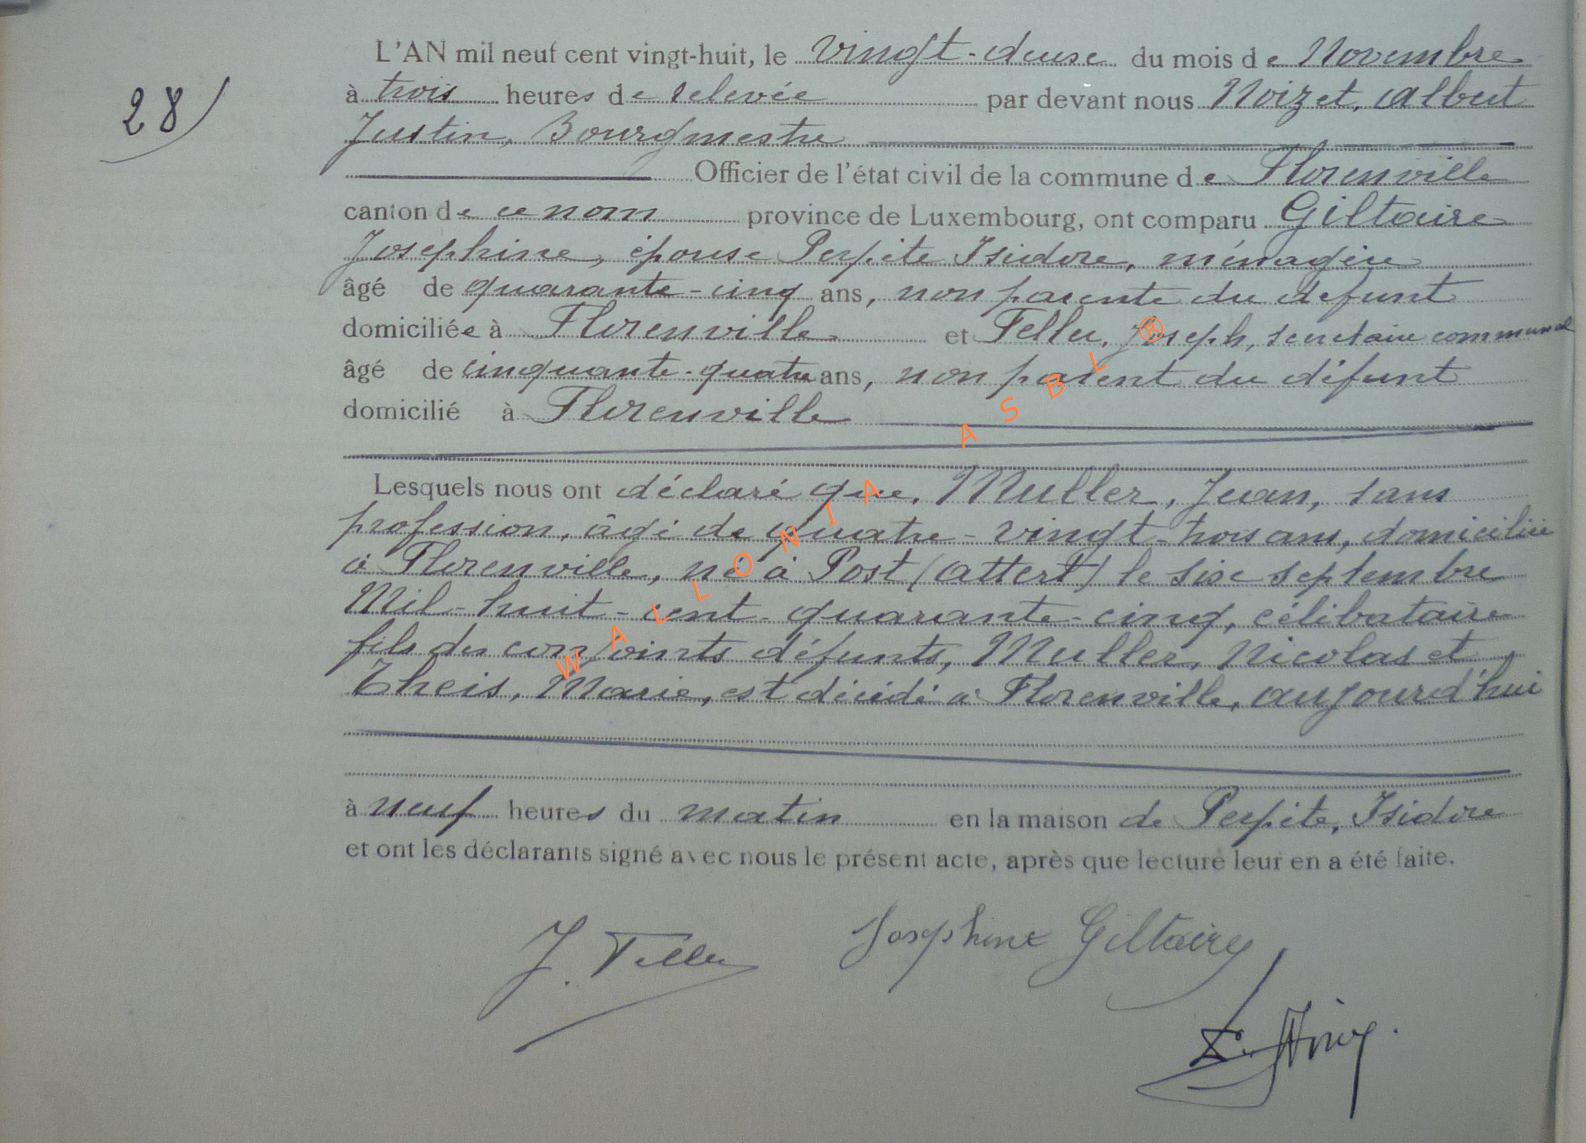 28
L'AN mil neuf cent vingt-huit, le vingt-deux du mois de Novembre
à trois heures de relevée par devant nous Noizet, Albert
Justin, Bourgmestre
Officier de l'état civil de la commune de Florenville
canton de ce nom province de Luxembourg, ont comparu Giltaire
Josephine, épouse Perpète Isidore, ménagère
âgé de quarante-cinq ans, non parente du défunt
domiciliée à Florenville et Feller, Joseph, secretaire communal
âgé de cinquante-quatre ans, non parent du défunt
domicilié à Florenville
Lesquels nous ont déclaré que, Muller, Jean, sans
profession, âgé de quatre-vingt-trois ans, domicilié
à Florenville, né à Post (Attert) le six septembre
Mil-huit-cent-quarante-cinq, célibataire
fils des conjoints défunts, Muller, Nicolas et
Theis, Marie, est décédé à Florenville, aujourd'hui
à neuf heures du matin en la maison de Perpète, Isidore
et ont les déclarants signé avec nous le présent acte, après que lecture leur en a été faite.
J. Feller Josephine Giltaire
WALLONIA ASBL ®